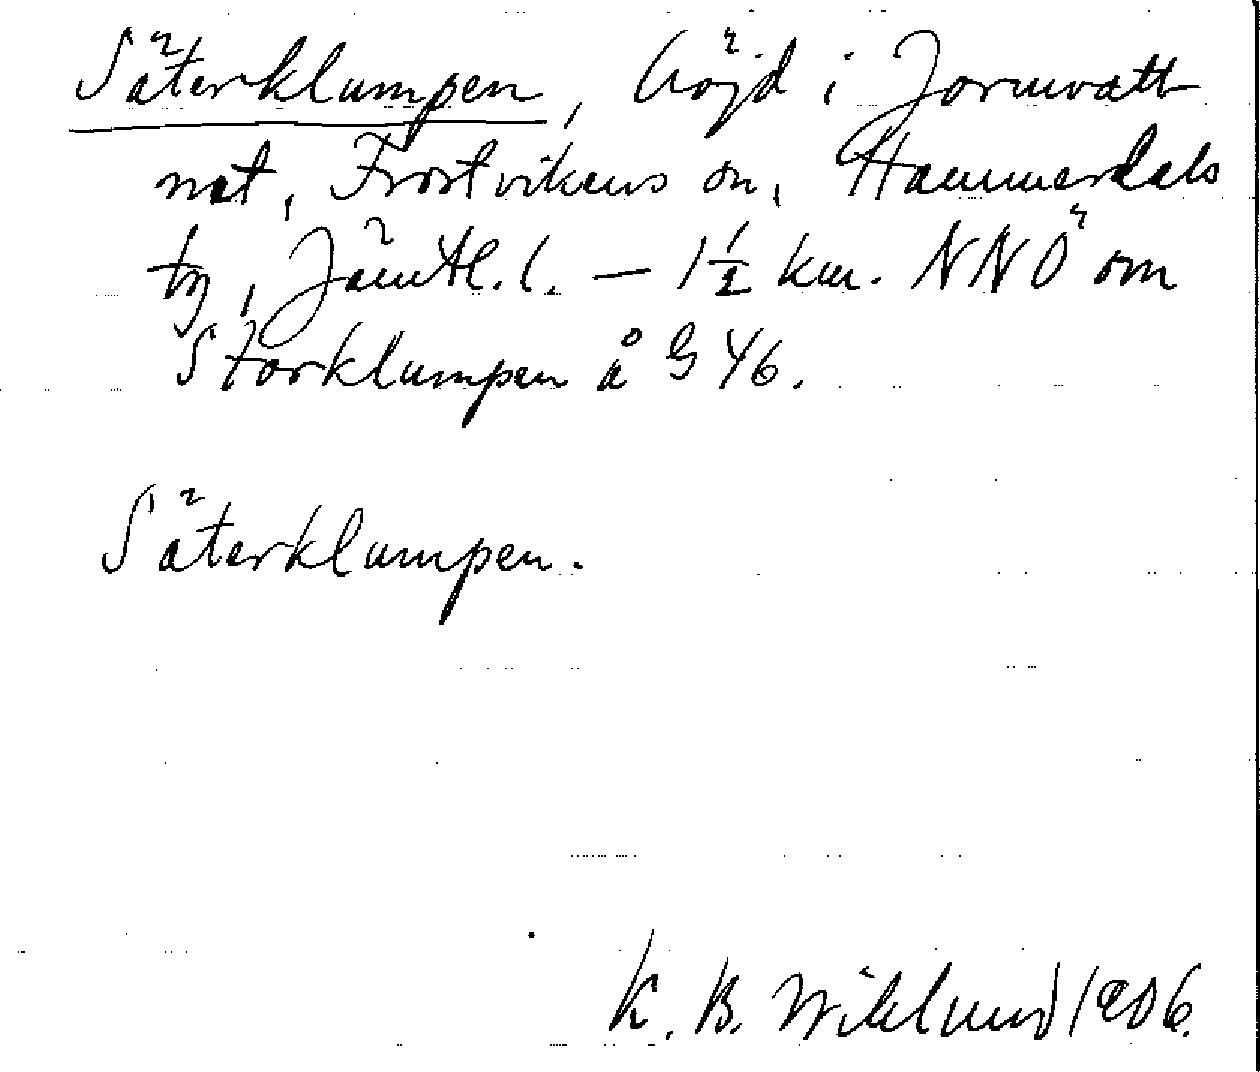 Säterklumpen, höjd i Jormvatt
net, Frostvikens sn, Hammerdals
tg, Jämtl. l. — 1 1/2 km. NNÖ om
Storklumpen å G 46.
Säterklumpen.
K. B. Wiklund 1906.